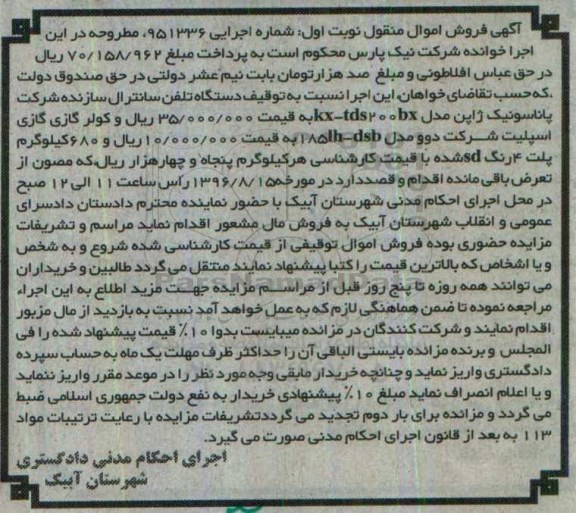 آگهی فروش اموال منقول نوبت اول: شماره اجرایی ۹۵۱۳۳۶، مطروحه در این
اجرا خوانده شرکت نیک پارس محکوم است به پرداخت مبلغ ۷۰/۱۵۸/۹۶۲ ریال
در حق عباس افلاطونی و مبلغ صد هزار تومان بابت نیم عشر دولتی در حق صندوق دولت
،که حسب تقاضای خواهان، این اجرا نسبت به توقیف دستگاه تلفن سانترال سازنده شرکت
پاناسونیک ژاپن مدل kx-tds۲۰۰bx به قیمت ۳۵/۰۰۰/۰۰۰ ریال و کولر گازی گازی
اسپلیت شرکت دوو مدل ۱۸۵lh-dsb به قیمت ۱۰/۰۰۰/۰۰۰ ریال و ۶۸۰ کیلوگرم
پلت ۴ رنگ sd شده با قیمت کارشناسی هر کیلوگرم پنجاه و چهار هزار ریال، که مصون از
تعرض باقی مانده اقدام و قصد دارد در مورخه ۱۳۹۶/۸/۱۵ راس ساعت ۱۱ الی ۱۲ صبح
در محل اجرای احکام مدنی شهرستان آبیک با حضور نماینده محترم دادستان دادسرای
عمومی و انقلاب شهرستان آبیک به فروش مال مشعور اقدام نماید مراسم و تشریفات
مزایده حضوری بوده فروش اموال توقیفی از قیمت کارشناسی شده شروع و به شخص
و یا اشخاص که بالاترین قیمت را کتبا پیشنهاد نمایند منتقل می گردد طالبین و خریداران
می توانند همه روزه تا پنج روز قبل از مراسم مزایده جهت مزید اطلاع به این اجراء
مراجعه نموده تا ضمن هماهنگی لازم که به عمل خواهد آمد نسبت به بازدید از مال مزبور
اقدام نمایند و شرکت کنندگان در مزانده میبایست بدوا ۱۰٪ قیمت پیشنهاد شده را فی
المجلس و برنده مزانده بایستی الباقی آن را حداکثر ظرف مهلت یک ماه به حساب سپرده
دادگستری واریز نماید و چنانچه خریدار مابقی وجه مورد نظر را در موعد مقرر واریز ننماید
و یا اعلام انصراف نماید مبلغ ۱۰٪ پیشنهادی خریدار به نفع دولت جمهوری اسلامی ضبط
می گردد و مزانده برای بار دوم تجدید می گردد تشریفات مزایده با رعایت ترتیبات مواد
۱۱۳ به بعد از قانون اجرای احکام مدنی صورت می گیرد.
اجرای احکام مدنی دادگستری
شهرستان آبیک